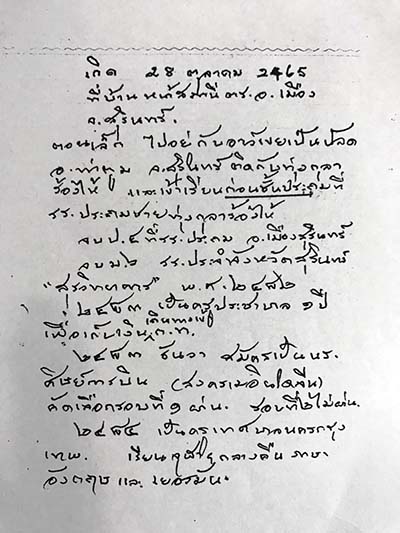 เกิด 28 ตุลาคม 2465
ที่บ้านหน้าสถานี ตร. อ. เมือง
จ. สุรินทร์.
ตอนเล็ก ไปอยู่กับอาว์เขยเป็นปลัด
อ. ท่าตูม จ.สุรินทร์ ติดกับทุ่งกุลา
ร้องไห้ และเข้าเรียนก่อนชั้นประถมที่
รร. ประถมชายทุ่งกุลาร้องไห้
จบ ป.๔ ที่ รร. ประถม อ.เมืองสุรินทร์
จบ ม.๖ รร. ประจำจังหวัดสุรินทร์
"สุรวิทยาคาร" พ.ศ. ๒๔๘๒
๒๔๘๓ เป็นครูประชาบาล ๑ ปี
เพื่อเก็บเงิน
๒๔๘๓ ธันวา สมัครเป็น นร.
ศิษย์การบิน (สงครามอินโดจีน)
คัดเลือกรอบที่ ๑ ผ่าน. รอบที่ ๒ ไม่ผ่าน.
๒๔๘๔ เป็นครูเทศบาลนครกรุง
เทพ. เรียน กลางคืน ภาษา
อังกฤษ และ เยอรมัน.